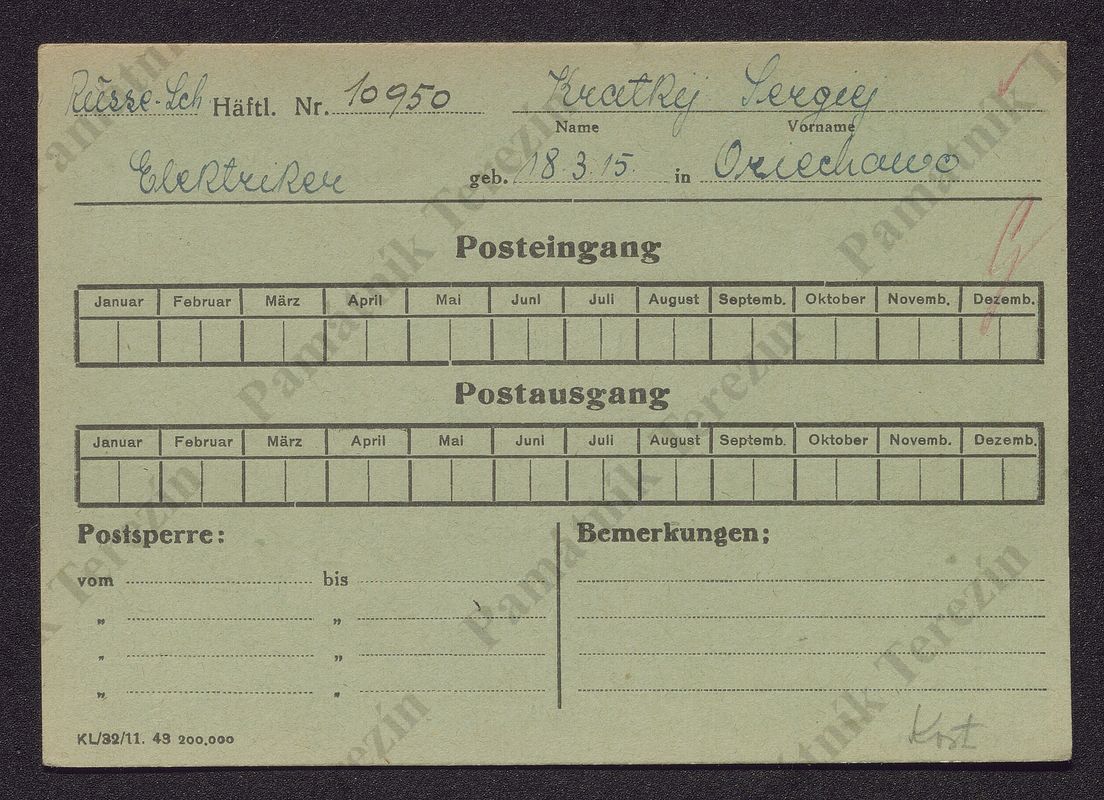 Russe-Sch Häftl. Nr. 10950 Kratkij Sergiej
Name Vorname
Elektriker geb. 18.3.15. in Oriechowo
Posteingang
Januar Februar März April Mai Juni Juli August Septemb. Oktober Novemb. Dezemb.
Postausgang
Januar Februar März April Mai Juni Juli August Septemb. Oktober Novemb. Dezemb.
Postsperre: Bemerkungen:
vom bis
„ „
„ „
„ „
KL/32/11. 43 200.000
Kost
Památník Terezín